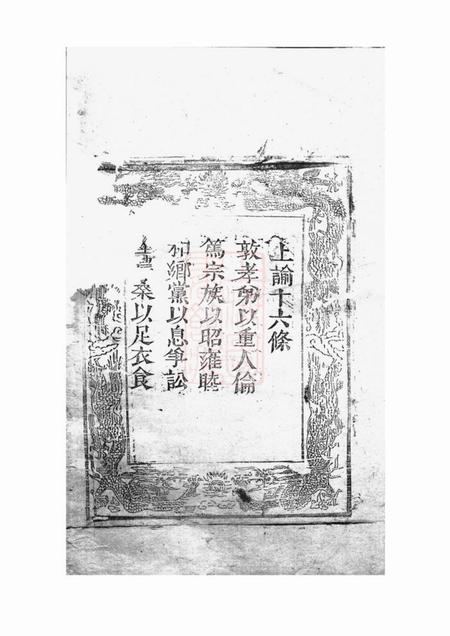 上諭十六條
敦孝弟以重人倫
篤宗族以昭雍睦
和鄉黨以息爭訟
桑以足衣食